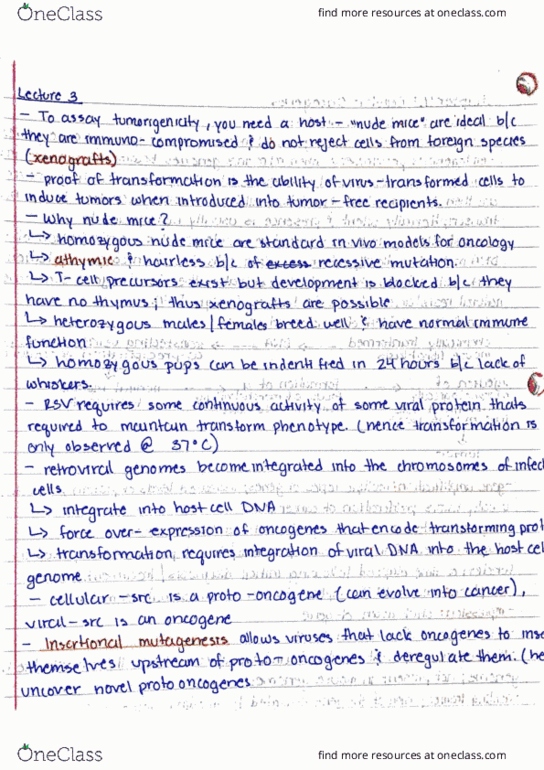 OneClass
find more resources at oneclass.com
Lecture 3
- To assay tumorigenicity, you need a host - "nude mice" are ideal b/c
they are immuno-compromised & do not reject cells from foreign species
(xenografts)
- proof of transformation is the ability of virus-transformed cells to
induce tumors when introduced into tumor-free recipients.
- Why nude mice?
↳ homozygous nude mice are standard in vivo models for oncology
↳ athymic & hairless b/c of excess recessive mutation.
↳ T-cell precursors exist but development is blocked b/c they
have no thymus; thus xenografts are possible
↳ heterozygous males/females breed well & have normal immune
function
↳ homozygous pups can be indentified in 24 hours b/c lack of
whiskers.
- RSV requires some continuous activity of some viral protein thats
required to maintain transform phenotype. (hence transformation is
only observed @ 37°C)
- retroviral genomes become integrated into the chromosomes of infec
cells
↳ integrate into host cell DNA
↳ force over-expression of oncogenes that encode transforming prot
↳ transformation, requires integration of viral DNA into the host cel
genome.
- cellular-src is a proto-oncogene (can evolve into cancer),
viral-src is an oncogene
- Insertional mutagenesis allows viruses that lack oncogenes to inse
themselves upstream of proto-oncogenes & deregulate them. (he
uncover novel protooncogenes
OneClass
find more resources at oneclass.com